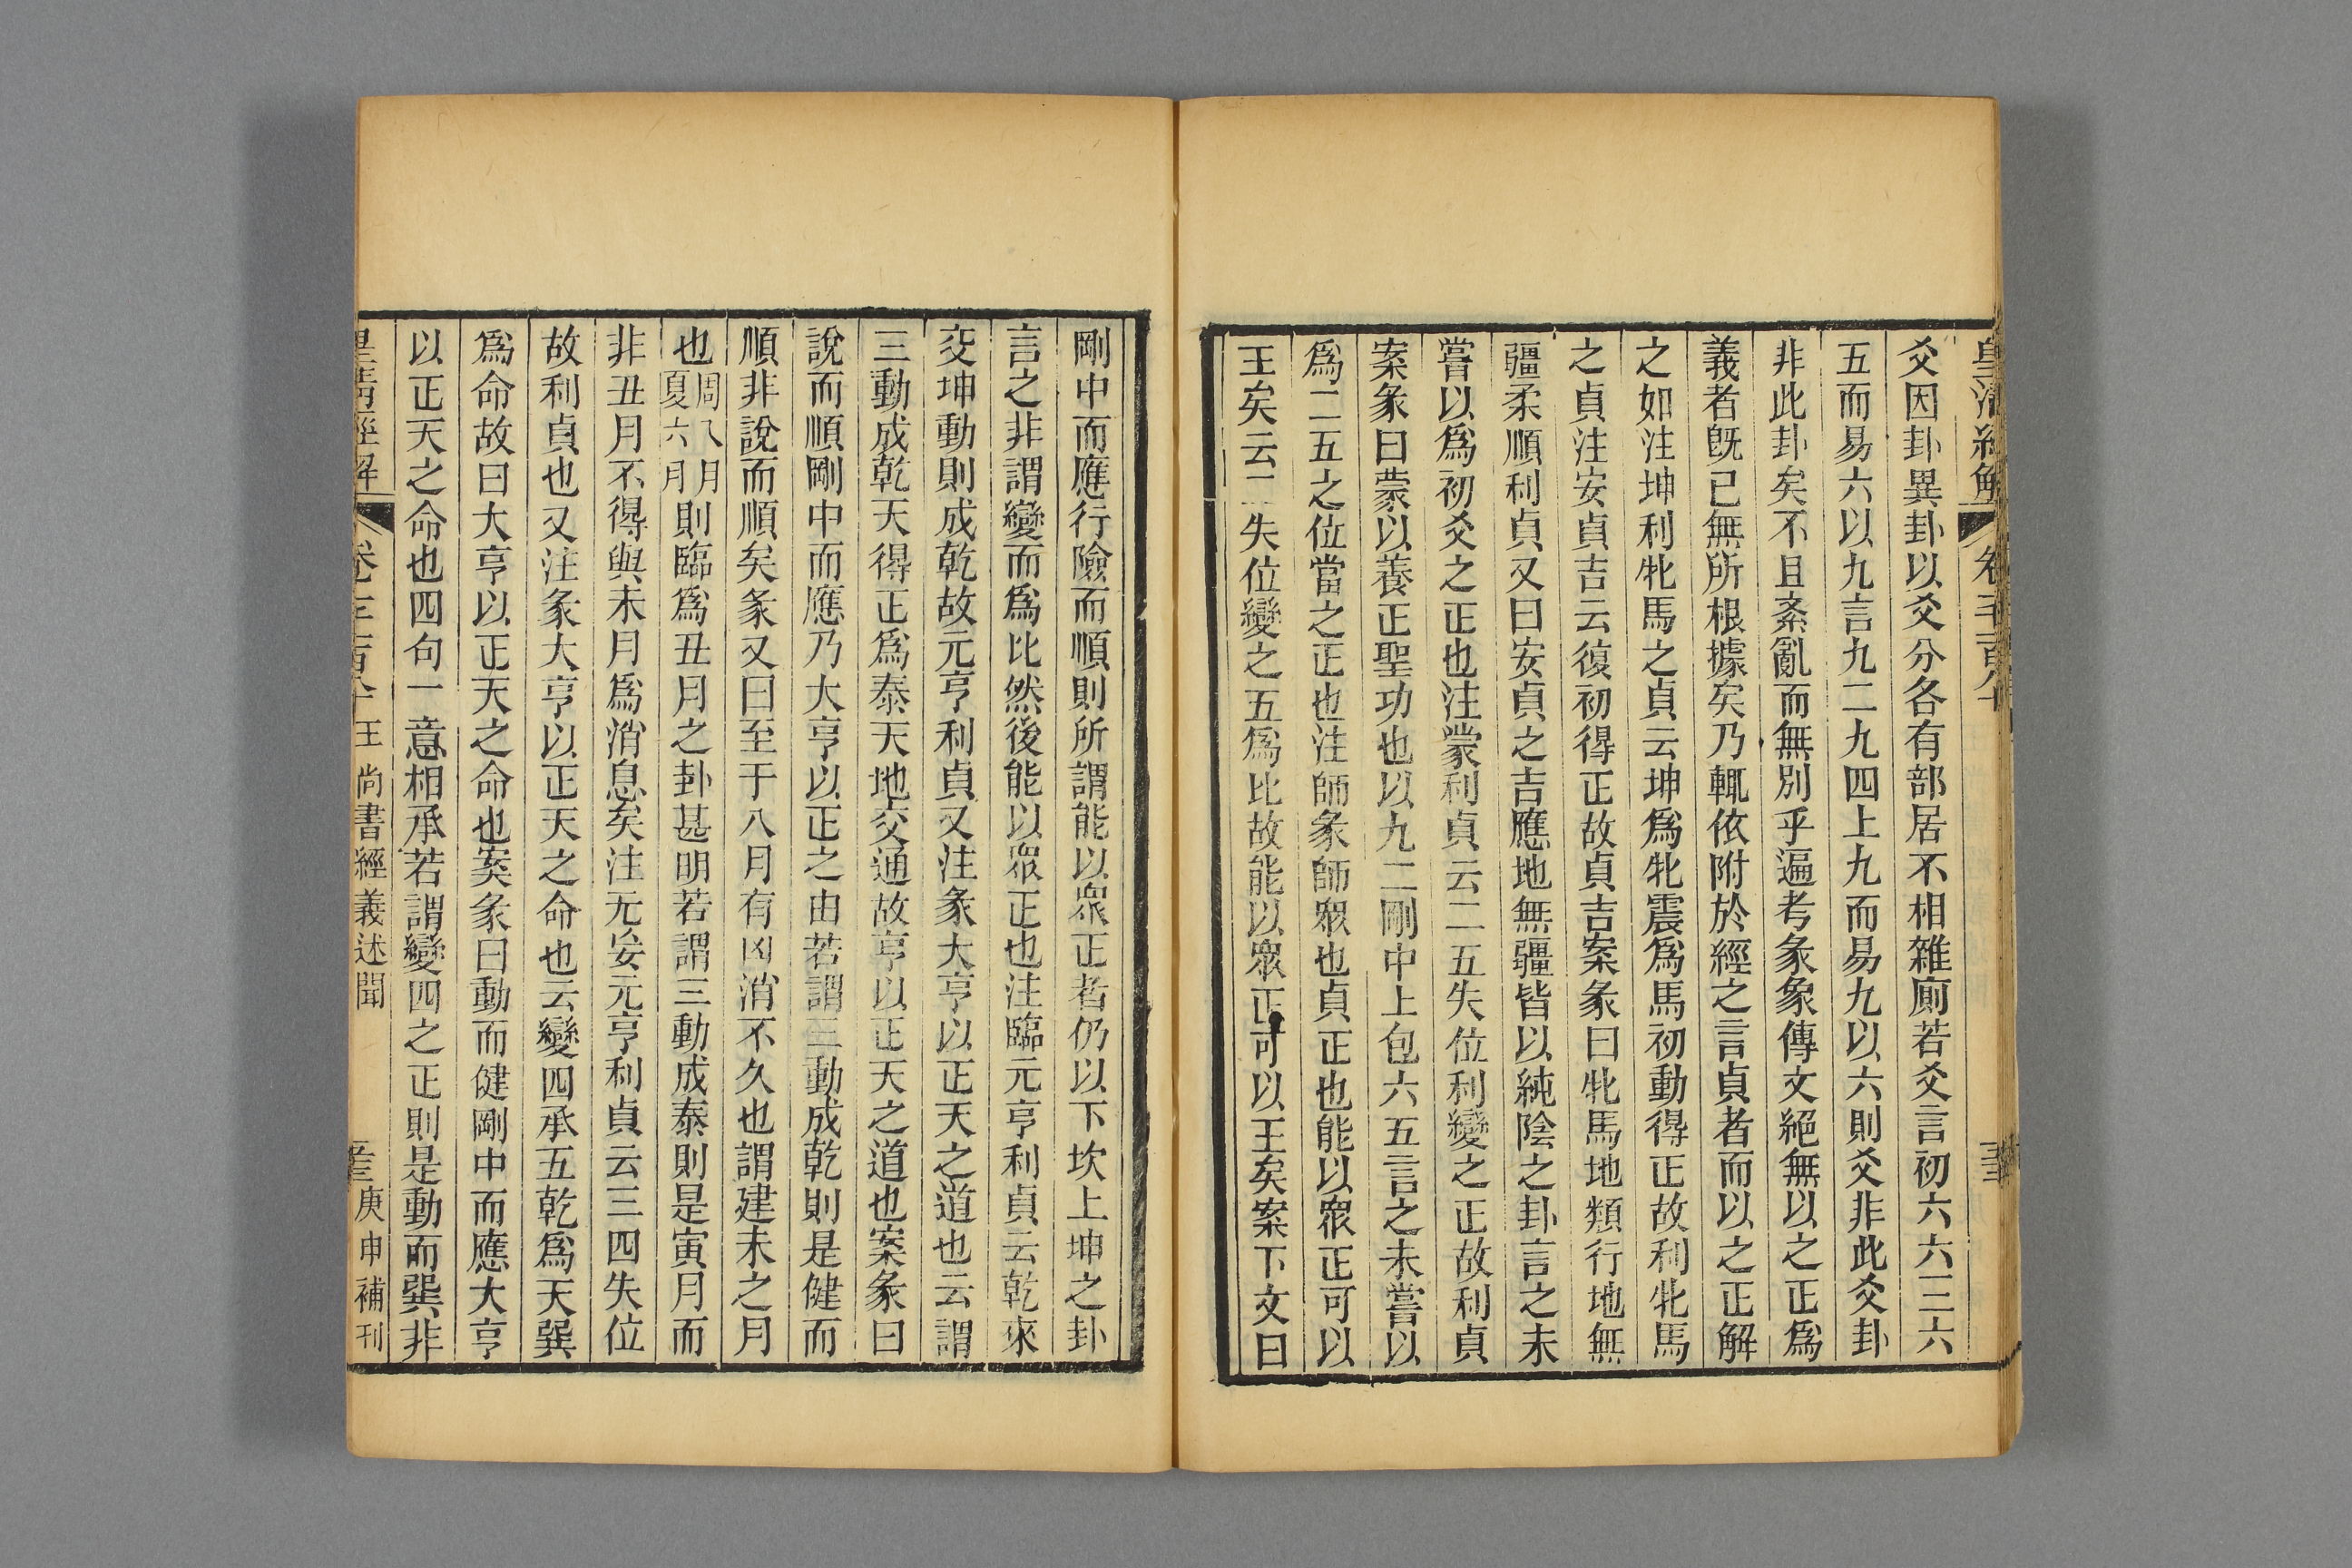 皇清經解 卷千一百八十
爻因卦異卦以爻分各有部居不相雜廁若爻言初六六三六
五而易六以九言九二九四上九而易九以六則爻非此爻卦
非此卦矣不且紊亂而無別乎遍考彖象傳文絕無以之正爲
義者既已無所根據矣乃輒依附於經之言貞者而以之正解
之如注坤利牝馬之貞云坤爲牝震爲馬初動得正故利牝馬
之貞注安貞吉云復初得正故貞吉案彖曰牝馬地類行地無
疆柔順利貞又曰安貞之吉應地無疆皆以純陰之卦言之未
嘗以爲初爻之正也注蒙利貞云二五失位利變之正故利貞
案彖曰蒙以養正聖功也以九二剛中上包六五言之未嘗以
爲二五之位當之正也注師彖師眾也貞正也能以眾正可以
王矣云二失位變之五爲比故能以眾正可以王矣案下文曰
剛中而應行險而順則所謂能以眾正者仍以下坎上坤之卦
言之非謂變而爲比然後能以眾正也注臨元亨利貞云乾來
交坤動則成乾故元亨利貞又注彖大亨以正天之道也云謂
三動成乾天得正爲泰天地交通故亨以正天之道也案彖曰
說而順剛中而應乃大亨以正之由若謂三動成乾則是健而
順非說而順矣彖又曰至于八月有凶消不久也謂建未之月
也周八月夏六月則臨爲丑月之卦甚明若謂三動成泰則是寅月而
非丑月不得與未月爲消息矣注无妄元亨利貞云三四失位
故利貞也又注彖大亨以正天之命也云變四承五乾爲天巽
爲命故曰大亨以正天之命也案彖曰動而健剛中而應大亨
以正天之命也四句一意相承若謂變四之正則是動而巽非
皇清經解 卷千一百八十 王尚書經義述聞 庚申補刊